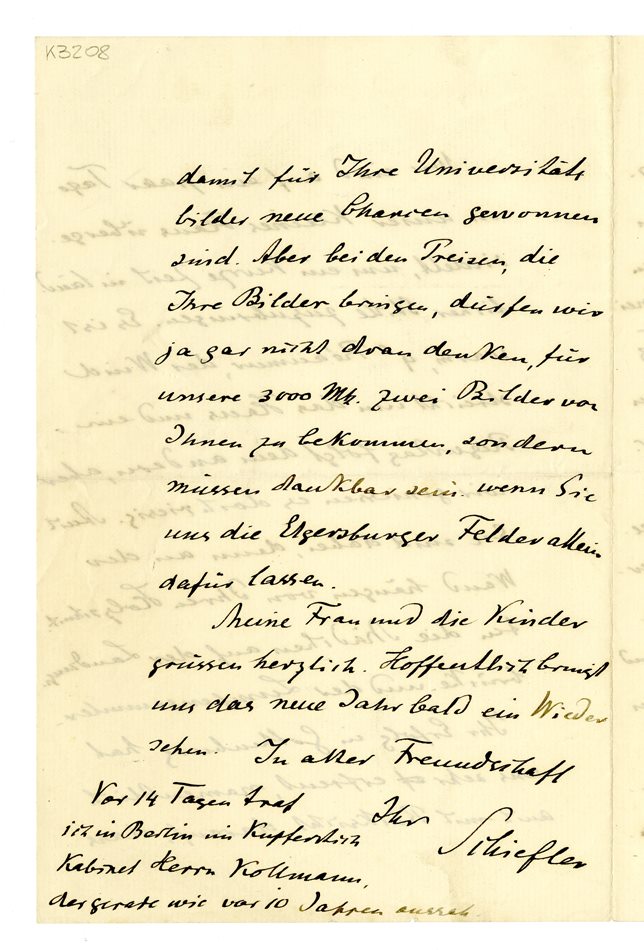 K3208
damit für Ihre Universitäts
bilder neue Chancen gewonnen
sind. Aber bei den Preisen, die
Ihre Bilder bringen, dürfen wir
ja gar nicht dran denken, für
unsere 3000 Mk. zwei Bilder von
Ihnen zu bekommen, sondern
müssen dankbar sein wenn Sie
uns die Elgersburger Felder allein
dafür lassen.
Meine Frau und die Kinder
grüssen herzlich. Hoffentlich bringt
uns das neue Jahr bald ein Wieder
sehen. In alter Freundschaft
Ihr
Schiefler
Vor 14 Tagen traf
ich in Berlin im Kupferstich
Kabinet Herrn Kollmann,
der gerade wie vor 10 Jahren aussah.